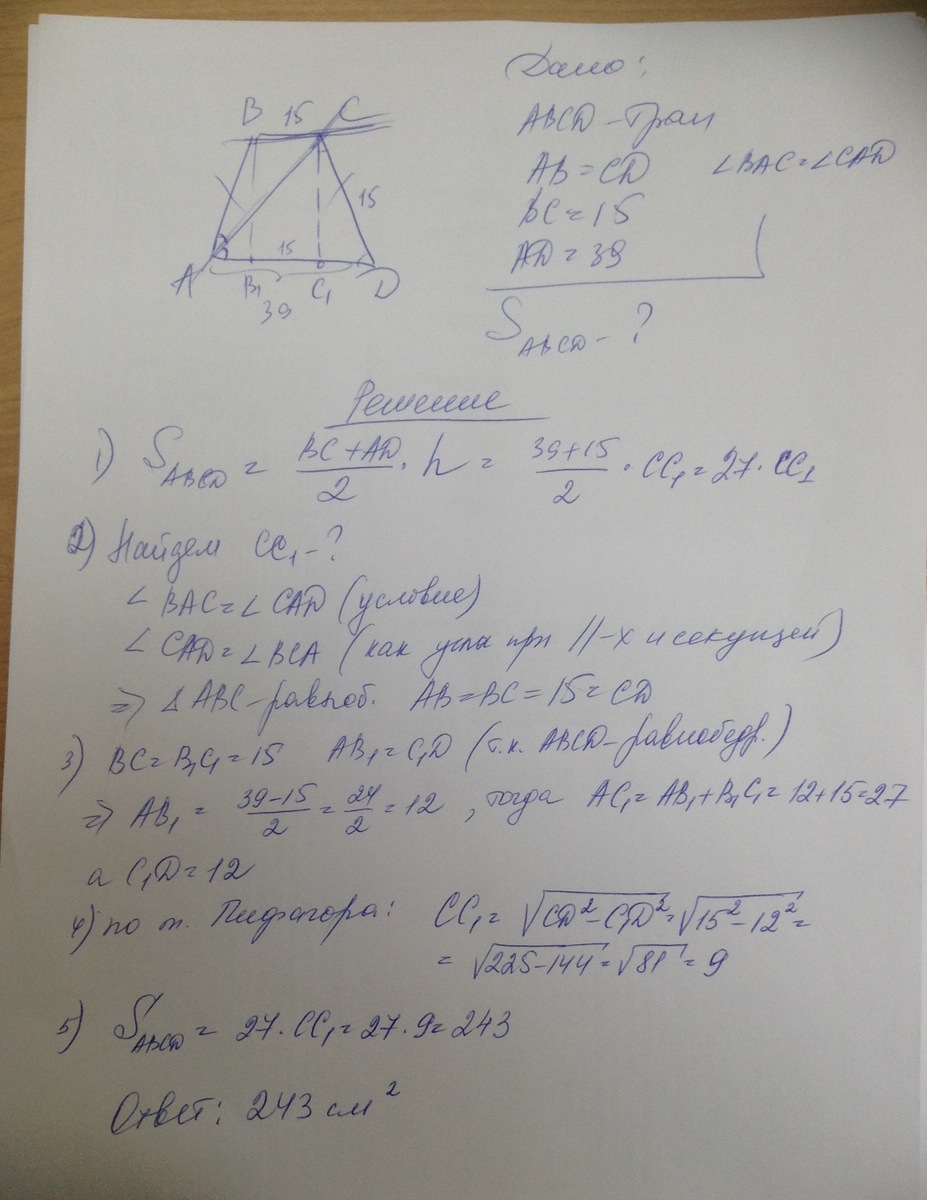 Дано:
B 15 C
ABCD - трап
AB = CD ∠BAC = ∠CAD
15
BC = 15
15
AD = 39
A B₁ C₁ D
39
S_ABCD - ?
Решение
1) S_ABCD = (BC + AD)/2 · h = (39+15)/2 · CC₁ = 27 · CC₁
2) Найдем CC₁ - ?
∠ BAC = ∠ CAD (условие)
∠ CAD = ∠ BCA (как углы при //-х и секущей)
⇒ △ ABC - равноб. AB = BC = 15 = CD
3) BC = B₁C₁ = 15 AB₁ = C₁D (т.к. ABCD - равнобедр.)
⇒ AB₁ = (39-15)/2 = 24/2 = 12 , тогда AC₁ = AB₁ + B₁C₁ = 12+15 = 27
а C₁D = 12
4) по т. Пифагора: CC₁ = √(CD² - C₁D²) = √(15² - 12²) =
= √(225-144) = √81 = 9
5) S_ABCD = 27 · CC₁ = 27 · 9 = 243
Ответ: 243 см²